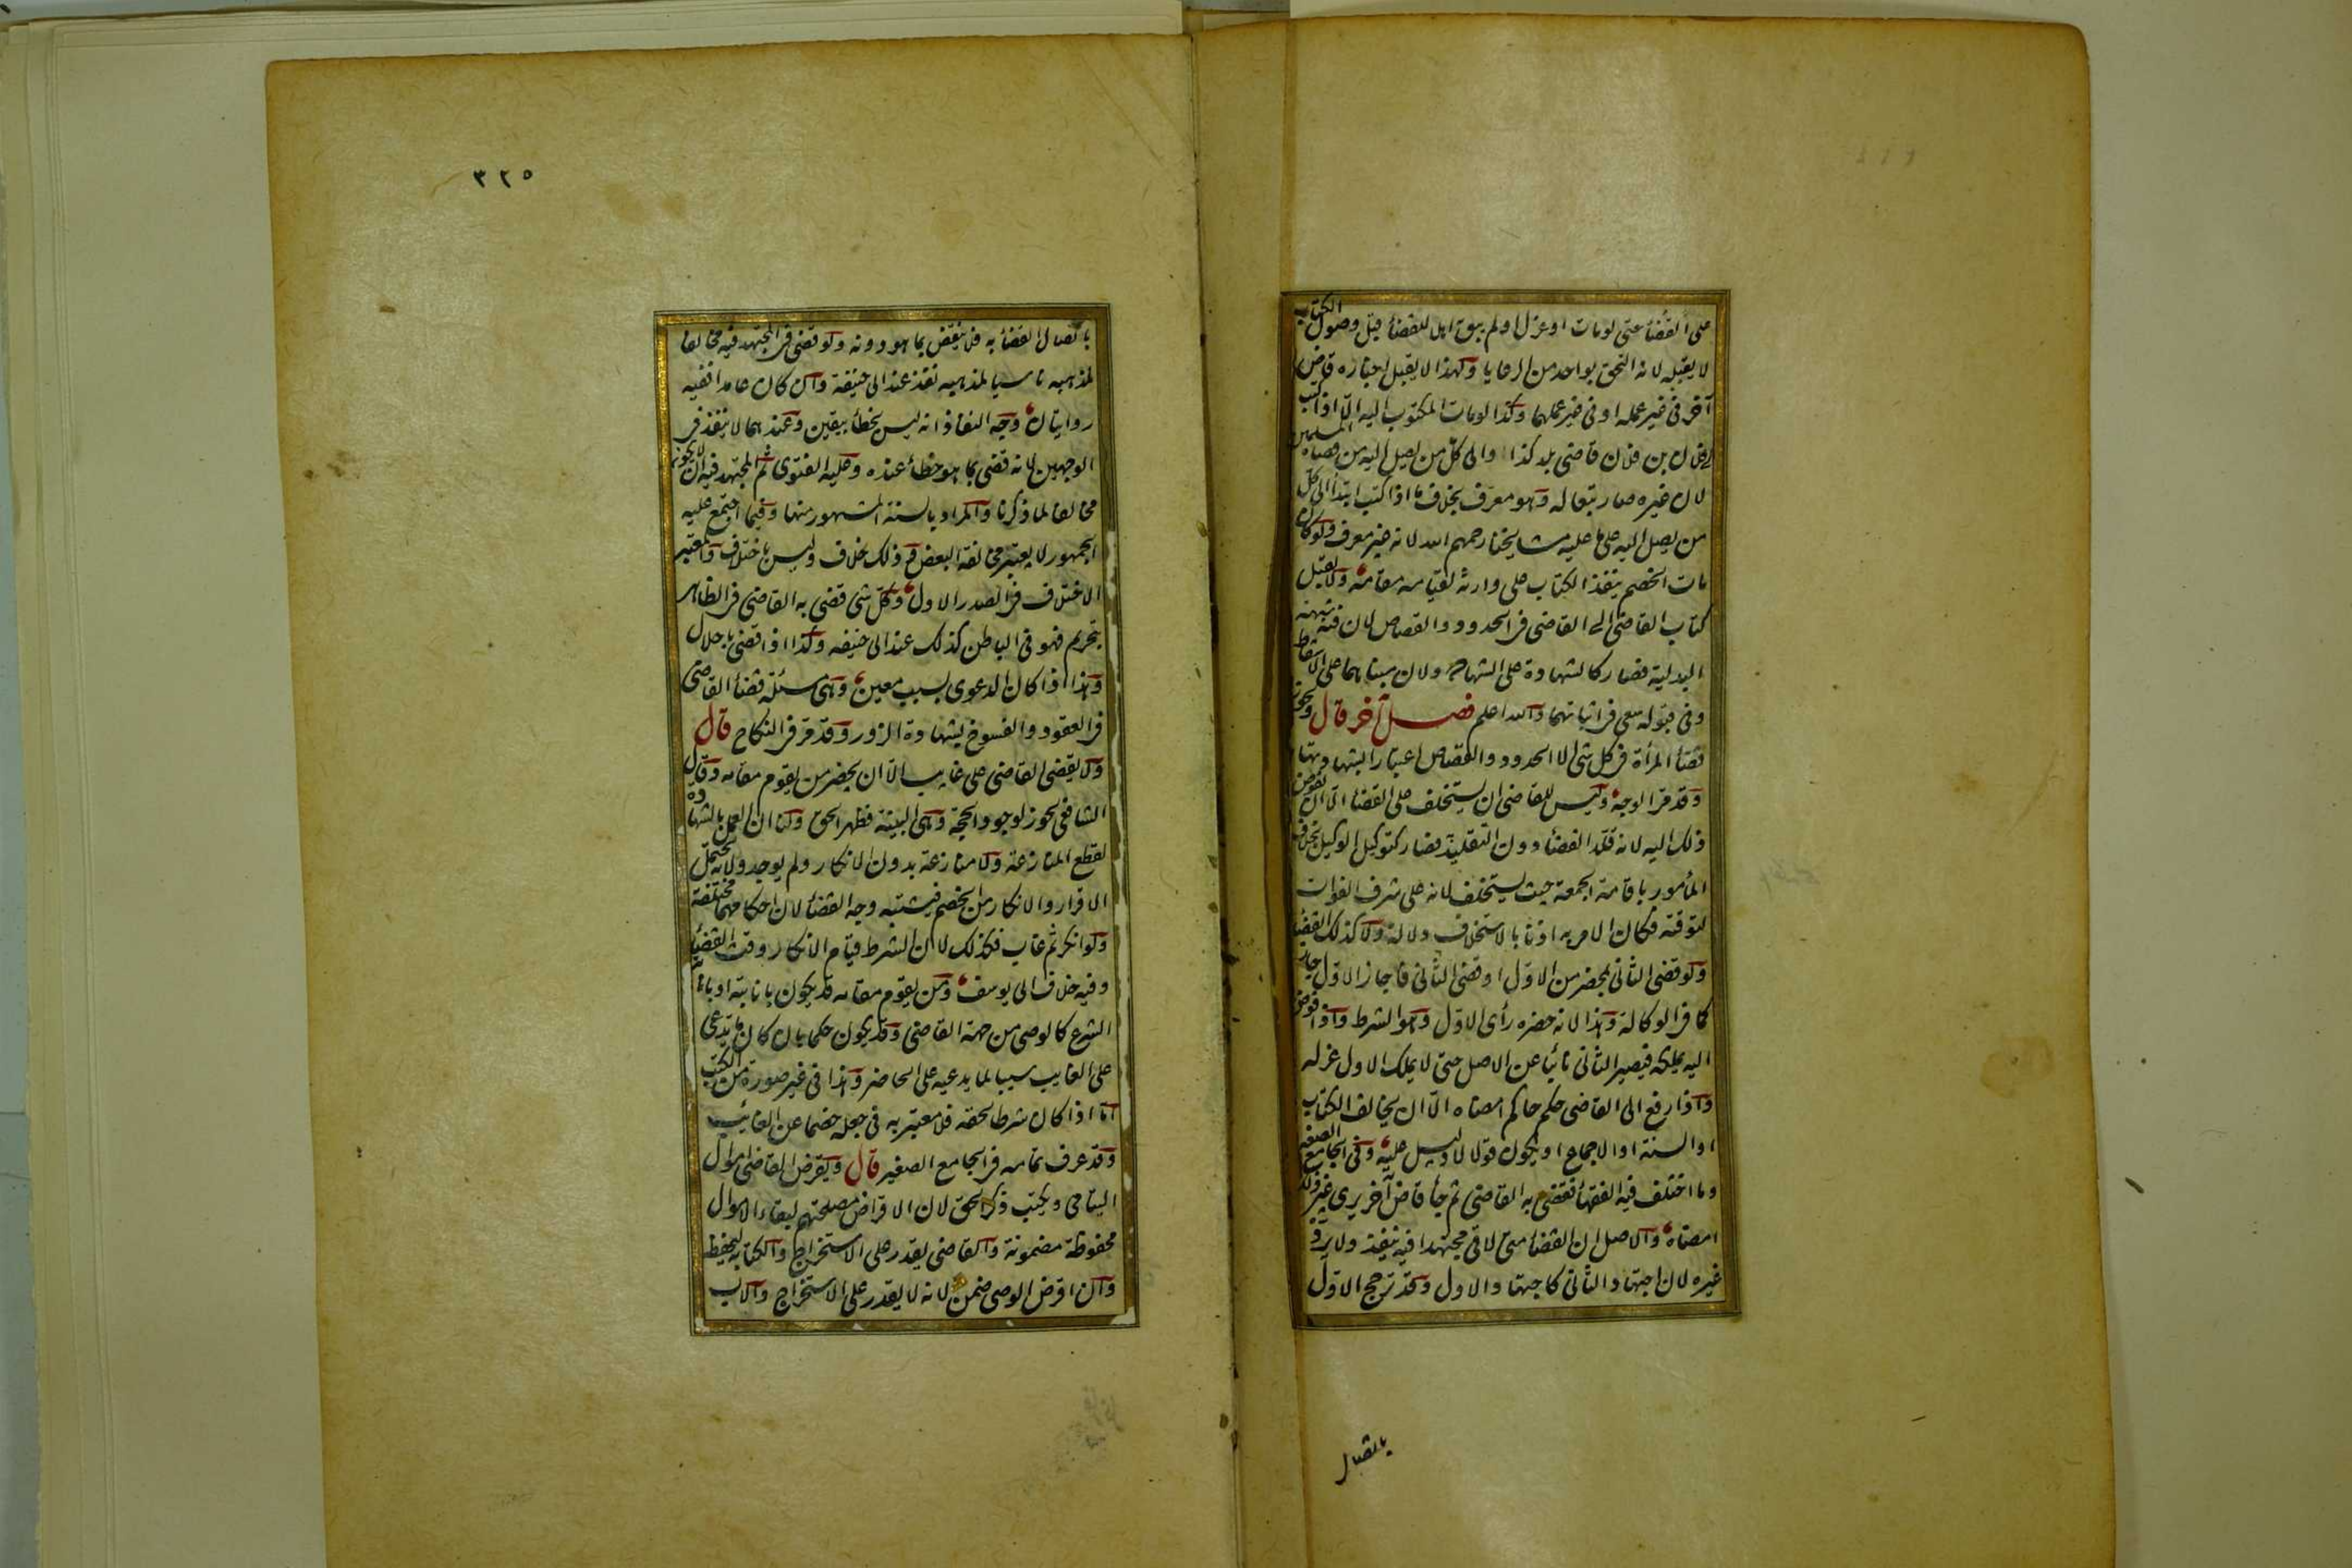 على القضاء حتى لو مات او عزل او لم يبق اهل للقضاء قبل وصول الكتاب
لا يقبله لانه التحق بواحد من الرعايا ولهذا لا يقبل اخباره قاض
آخر فى غير عمله او فى غير عملهما وكذا لو مات المكتوب اليه الا اذا كتب
الى فلان بن فلان قاضى بلد كذا والى كل من يصل اليه من قضاة المسلمين
لان غيره صار تبعا له وهو معرف بخلاف ما اذا كتب ابتداء الى كل
من يصل اليه على ما عليه مشايخنا رحمهم الله لانه غير معرف ولو كان
مات الخصم ينفذ الكتاب على وارثه لقيامه مقامه ولا يقبل
كتاب القاضى الى القاضى فى الحدود والقصاص لان فيه شبهة
البدلية فصار كالشهادة على الشهادة ولان مبناهما على الاسقاط
وفى قبوله سعى فى اثباتهما والله اعلم فصل آخر قال ويجوز
قضاء المرأة فى كل شئ الا الحدود والقصاص اعتبارا بشهادتها
وقد مر الوجه وليس للقاضى ان يستخلف على القضاء الا ان يفوض
ذلك اليه لانه قلد القضاء دون التقليد فصار كتوكيل الوكيل بخلاف
المأمور باقامة الجمعة حيث يستخلف لانه على شرف الفوات
لتوقته فكان الامر به اذنا بالاستخلاف دلالة ولا كذلك القضاء
ولو قضى الثانى بمحضر من الاول او قضى الثانى فاجاز الاول جاز
كما فى الوكالة وهذا لانه حضره رأى الاول وهو الشرط واذا فوض
اليه يملكه فيصير الثانى نائبا عن الاصل حتى لا يملك الاول عزله
واذا رفع الى القاضى حكم حاكم امضاه الا ان يخالف الكتاب
او السنة او الاجماع او يكون قولا لا دليل عليه وفى الجامع الصغير
وما اختلف فيه الفقهاء فقضى به القاضى ثم جاء قاض آخر يرى غير ذلك
امضاه والاصل ان القضاء متى لاقى مجتهدا فيه ينفذ ولا يرده
غيره لان اجتهاد الثانى كاجتهاد الاول وقد ترجح الاول
باتصال
٣٢٥
باتصال القضاء به فلا ينقض بما هو دونه ولو قضى فى المجتهد فيه مخالفا
لمذهبه ناسيا لمذهبه نفذ عند ابى حنيفة وان كان عامدا ففيه
روايتان وجه النفاذ انه ليس بخطأ بيقين وعندهما لا ينفذ فى
الوجهين لانه قضى بما هو خطأ عنده وعليه الفتوى ثم المجتهد فيه ان لا يكون
مخالفا لما ذكرنا والمراد بالسنة المشهور منها وفيما اجتمع عليه
الجمهور لا يعتبر مخالفة البعض وذلك خلاف وليس باختلاف والمعتبر
الاختلاف فى الصدر الاول وكل شئ قضى به القاضى فى الظاهر
بتحريم فهو فى الباطن كذلك عند ابى حنيفه وكذا اذا قضى باحلال
وهذا اذا كان الدعوى بسبب معين وهى مسئلة قضاء القاضى
فى العقود والفسوخ بشهادة الزور وقد مر فى النكاح قال
ولا يقضى القاضى على غايب الا ان يحضر من يقوم مقامه وقال
الشافعى يجوز لوجود الحجة وهى البينة فظهر الحق ولنا ان العمل بالشهادة
لقطع المنازعة ولا منازعة بدون الانكار ولم يوجد ولانه يحتمل
الاقرار والانكار من الخصم فيشتبه وجه القضاء لان احكامهما مختلفة
ولو انكر ثم غاب فكذلك لان الشرط قيام الانكار وقت القضاء
وفيه خلاف ابى يوسف ومن يقوم مقامه قد يكون بانابته او بانابة
الشرع كالوصى من جهة القاضى وقد يكون حكما بان كان ما يدعى
على الغايب سببا لما يدعيه على الحاضر وهذا فى غير صورة من الكتب
اما اذا كان شرطا لحقه فلا معتبر به فى جعله خصما عن الغائب
وقد عرف تمامه فى الجامع الصغير قال ويقرض القاضى اموال
اليتامى ويكتب ذكر الحق لان الاقراض مصلحتهم لبقاء الاموال
محفوظة مضمونة والقاضى يقدر على الاستخراج والكتابة ليحفظه
وان اقرض الوصى ضمن لانه لا يقدر على الاستخراج والاب